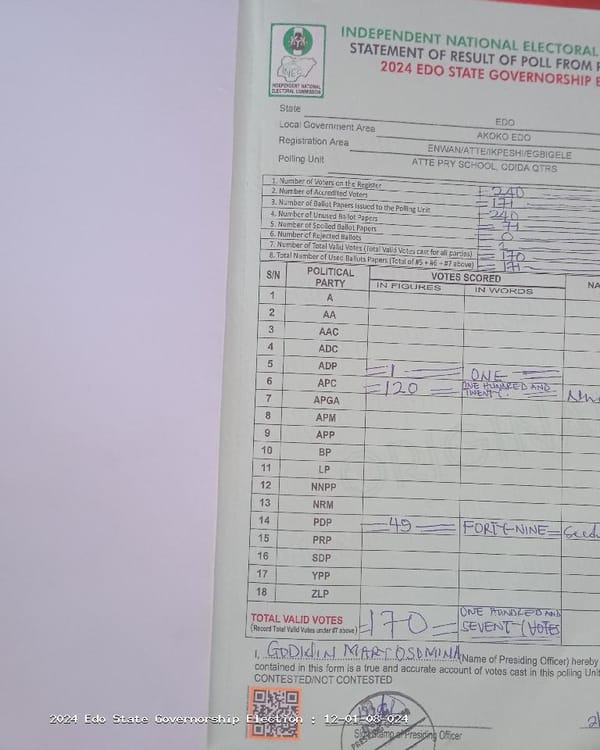 INDEPENDENT NATIONAL ELECTORAL
STATEMENT OF RESULT OF POLL FROM
2024 EDO STATE GOVERNORSHIP
INEC
INDEPENDENT NATIONAL
ELECTORAL COMMISSION
State EDO
Local Government Area AKOKO EDO
Registration Area ENWAN/ATTE/IKPESHI/EGBIGELE
Polling Unit ATTE PRY SCHOOL, ODIDA QTRS
1. Number of Voters on the Register 240
2. Number of Accredited Voters 171
3. Number of Ballot Papers Issued to the Polling Unit 240
4. Number of Unused Ballot Papers
5. Number of Spoiled Ballot Papers 0
6. Number of Rejected Ballots
7. Number of Total Valid Votes (Total Valid Votes cast for all parties) 170
8. Total Number of Used Ballots Papers (Total of #5 + #6 + #7 above) 171
S/N POLITICAL PARTY VOTES SCORED
IN FIGURES IN WORDS NA
1 A
2 AA
3 AAC
4 ADC
5 ADP 1 ONE
6 APC 120 ONE HUNDRED AND TWENTY
7 APGA
8 APM
9 APP
10 BP
11 LP
12 NNPP
13 NRM
14 PDP 49 FORTY-NINE
15 PRP
16 SDP
17 YPP
18 ZLP
TOTAL VALID VOTES 170 ONE HUNDRED AND
(Record Total Valid Votes under #7 above) SEVENTY VOTES
I, (Name of Presiding Officer) hereby
contained in this form is a true and accurate account of votes cast in this polling Unit
CONTESTED/NOT CONTESTED
2024 Edo State Governorship Election : 12-01-08-024
Presiding Officer